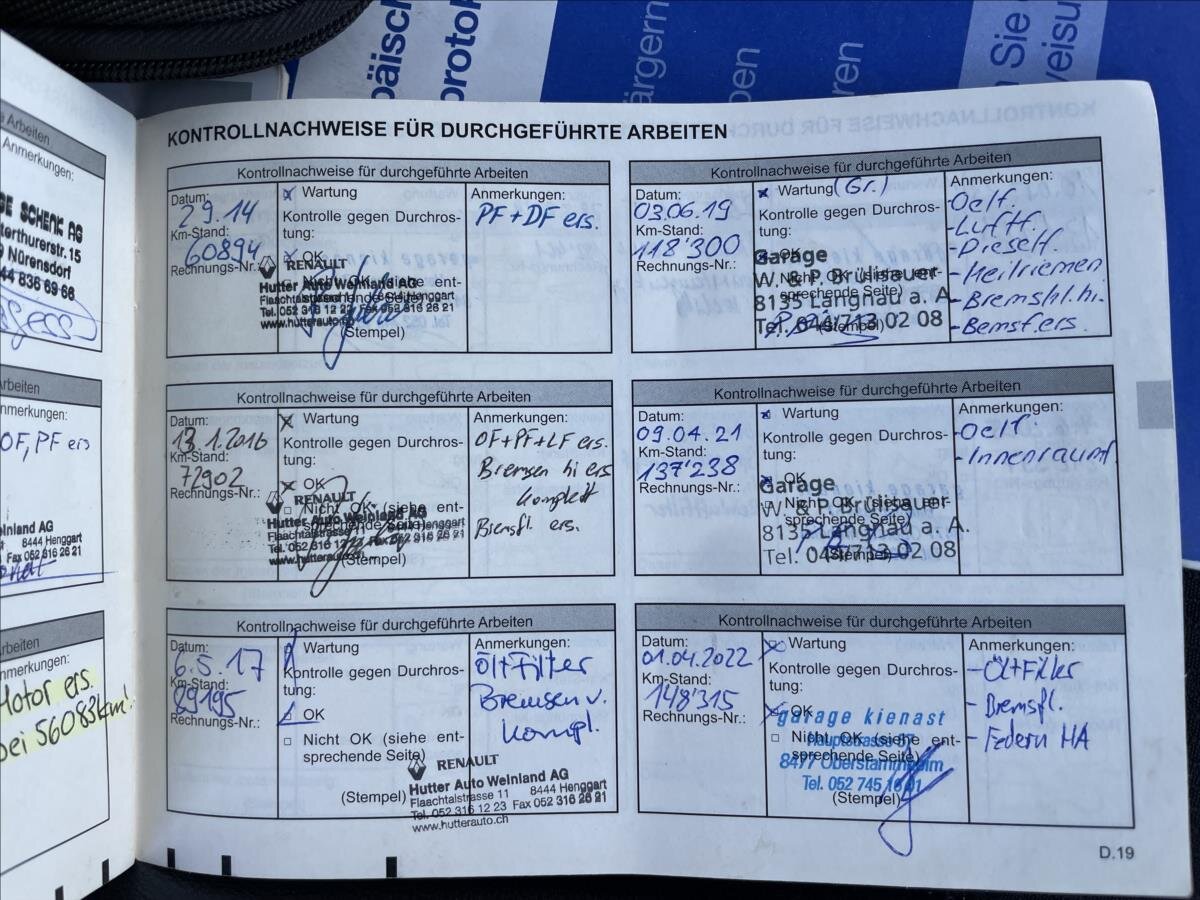 päisch
protok
ärgern
ben
ren
n Sie
veisu
e Arbeiten
Anmerkungen:
GE SCHENK AG
terthurerstr. 15
Nürensdorf
44 836 69 66
rbeiten
nmerkungen:
OF, PF ers
inland AG
8444 Henggart
Fax 052 316 26 21
rbeiten
nmerkungen:
Motor ers.
bei 56083km!
KONTROLLNACHWEISE FÜR DURCHGEFÜHRTE ARBEITEN
Kontrollnachweise für durchgeführte Arbeiten
Datum:
2.9.14
Km-Stand:
60894
Rechnungs-Nr.:
Wartung
Kontrolle gegen Durchros-
tung:
OK
Nicht OK (siehe ent-
sprechende Seite)
RENAULT
Hutter Auto Weinland AG
Flaachtalstrasse 11 8444 Henggart
Tel. 052 316 12 23 Fax 052 316 26 21
www.hutterauto.ch
(Stempel)
Anmerkungen:
PF + DF ers.
Kontrollnachweise für durchgeführte Arbeiten
Datum:
03.06.19
Km-Stand:
118'300
Rechnungs-Nr.:
Wartung (Gr.)
Kontrolle gegen Durchros-
tung:
OK
Nicht OK (siehe ent-
sprechende Seite)
Garage
W. & P. Brülisauer
8135 Langnau a. A.
Tel. 044/713 02 08
(Stempel)
Anmerkungen:
- Oelf.
- Luftf.
- Dieself.
- Keilriemen
- Bremskl. hi.
- Bemsf. ers.
Kontrollnachweise für durchgeführte Arbeiten
Datum:
13.1.2016
Km-Stand:
72902
Rechnungs-Nr.:
Wartung
Kontrolle gegen Durchros-
tung:
OK
Nicht OK (siehe ent-
sprechende Seite)
RENAULT
Hutter Auto Weinland AG
Flaachtalstrasse 11 8444 Henggart
Tel. 052 316 12 23 Fax 052 316 26 21
www.hutterauto.ch
(Stempel)
Anmerkungen:
OF + PF + LF ers.
Bremsen hi ers
komplett
Bremsfl. ers.
Kontrollnachweise für durchgeführte Arbeiten
Datum:
09.04.21
Km-Stand:
137'238
Rechnungs-Nr.:
Wartung
Kontrolle gegen Durchros-
tung:
OK
Nicht OK (siehe ent-
sprechende Seite)
Garage
W. & P. Brülisauer
8135 Langnau a. A.
Tel. 044/713 02 08
(Stempel)
Anmerkungen:
- Oelf.
- Innenraumf
Kontrollnachweise für durchgeführte Arbeiten
Datum:
6.5.17
Km-Stand:
89195
Rechnungs-Nr.:
Wartung
Kontrolle gegen Durchros-
tung:
OK
Nicht OK (siehe ent-
sprechende Seite)
RENAULT
Hutter Auto Weinland AG
Flaachtalstrasse 11 8444 Henggart
Tel. 052 316 12 23 Fax 052 316 26 21
www.hutterauto.ch
(Stempel)
Anmerkungen:
Öl + Filter
Bremsen v.
kompl.
Kontrollnachweise für durchgeführte Arbeiten
Datum:
01.04.2022
Km-Stand:
148'315
Rechnungs-Nr.:
Wartung
Kontrolle gegen Durchros-
tung:
OK
Nicht OK (siehe ent-
sprechende Seite)
garage kienast
Hauptstrasse
8477 Oberstammheim
Tel. 052 745
(Stempel)
Anmerkungen:
- Öl + Filter
- Bremsfl.
- Federn HA
D.19